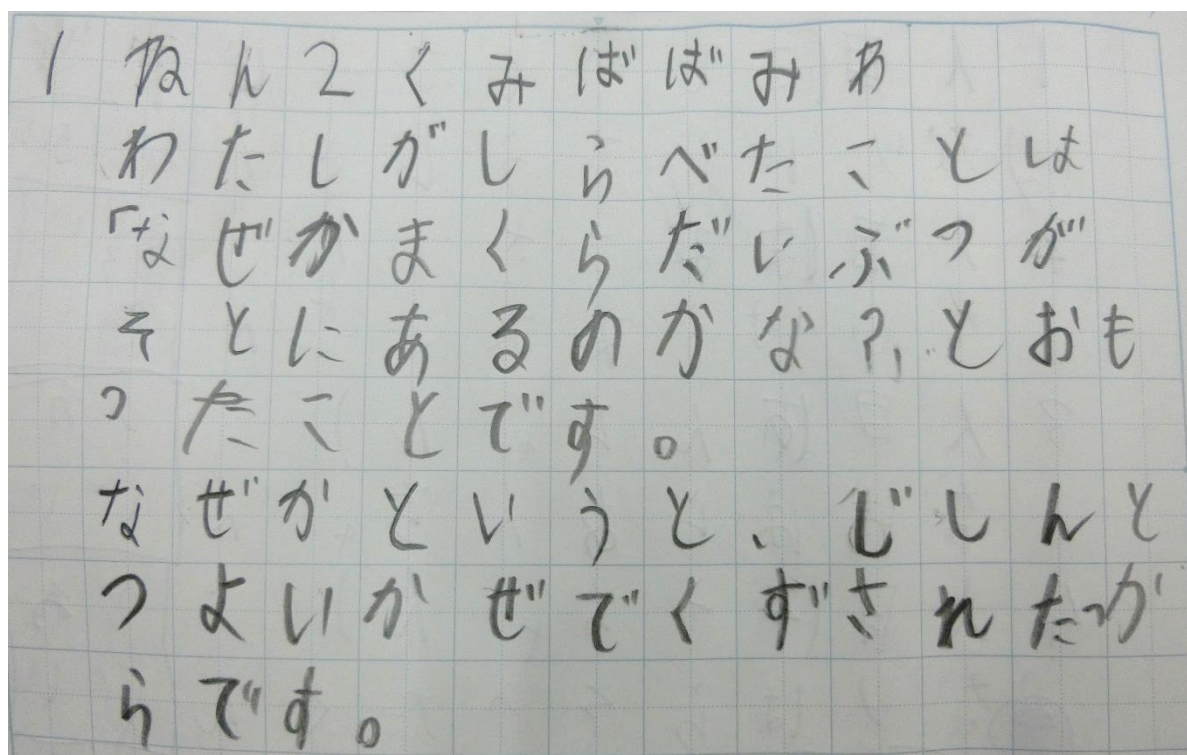 1ねん2くみばばみお
わたしがしらべたことは
「なぜかまくらだいぶつが
そとにあるのかな?」とおも
ったことです。
なぜかというと、じしんと
つよいかぜでくずされたか
らです。